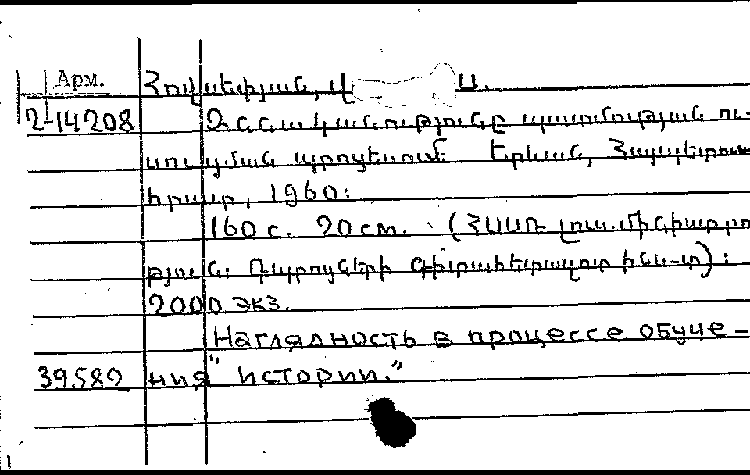 Арм. Հովսեփյան, Վ Ս.
2-14208 Զննականությունը պատմության ու-
սուցման պրոցեսում: Երևան, Հայպետուս
հրատ, 1960:
160 с. 20 см. (ՀՍՍՌ լուս. մինիստրու
թյուն: Դպրոցների գիտահետազոտ ինս-տ):
2000 экз.
Наглядность в процессе обуче-
39.582 ния" истории."